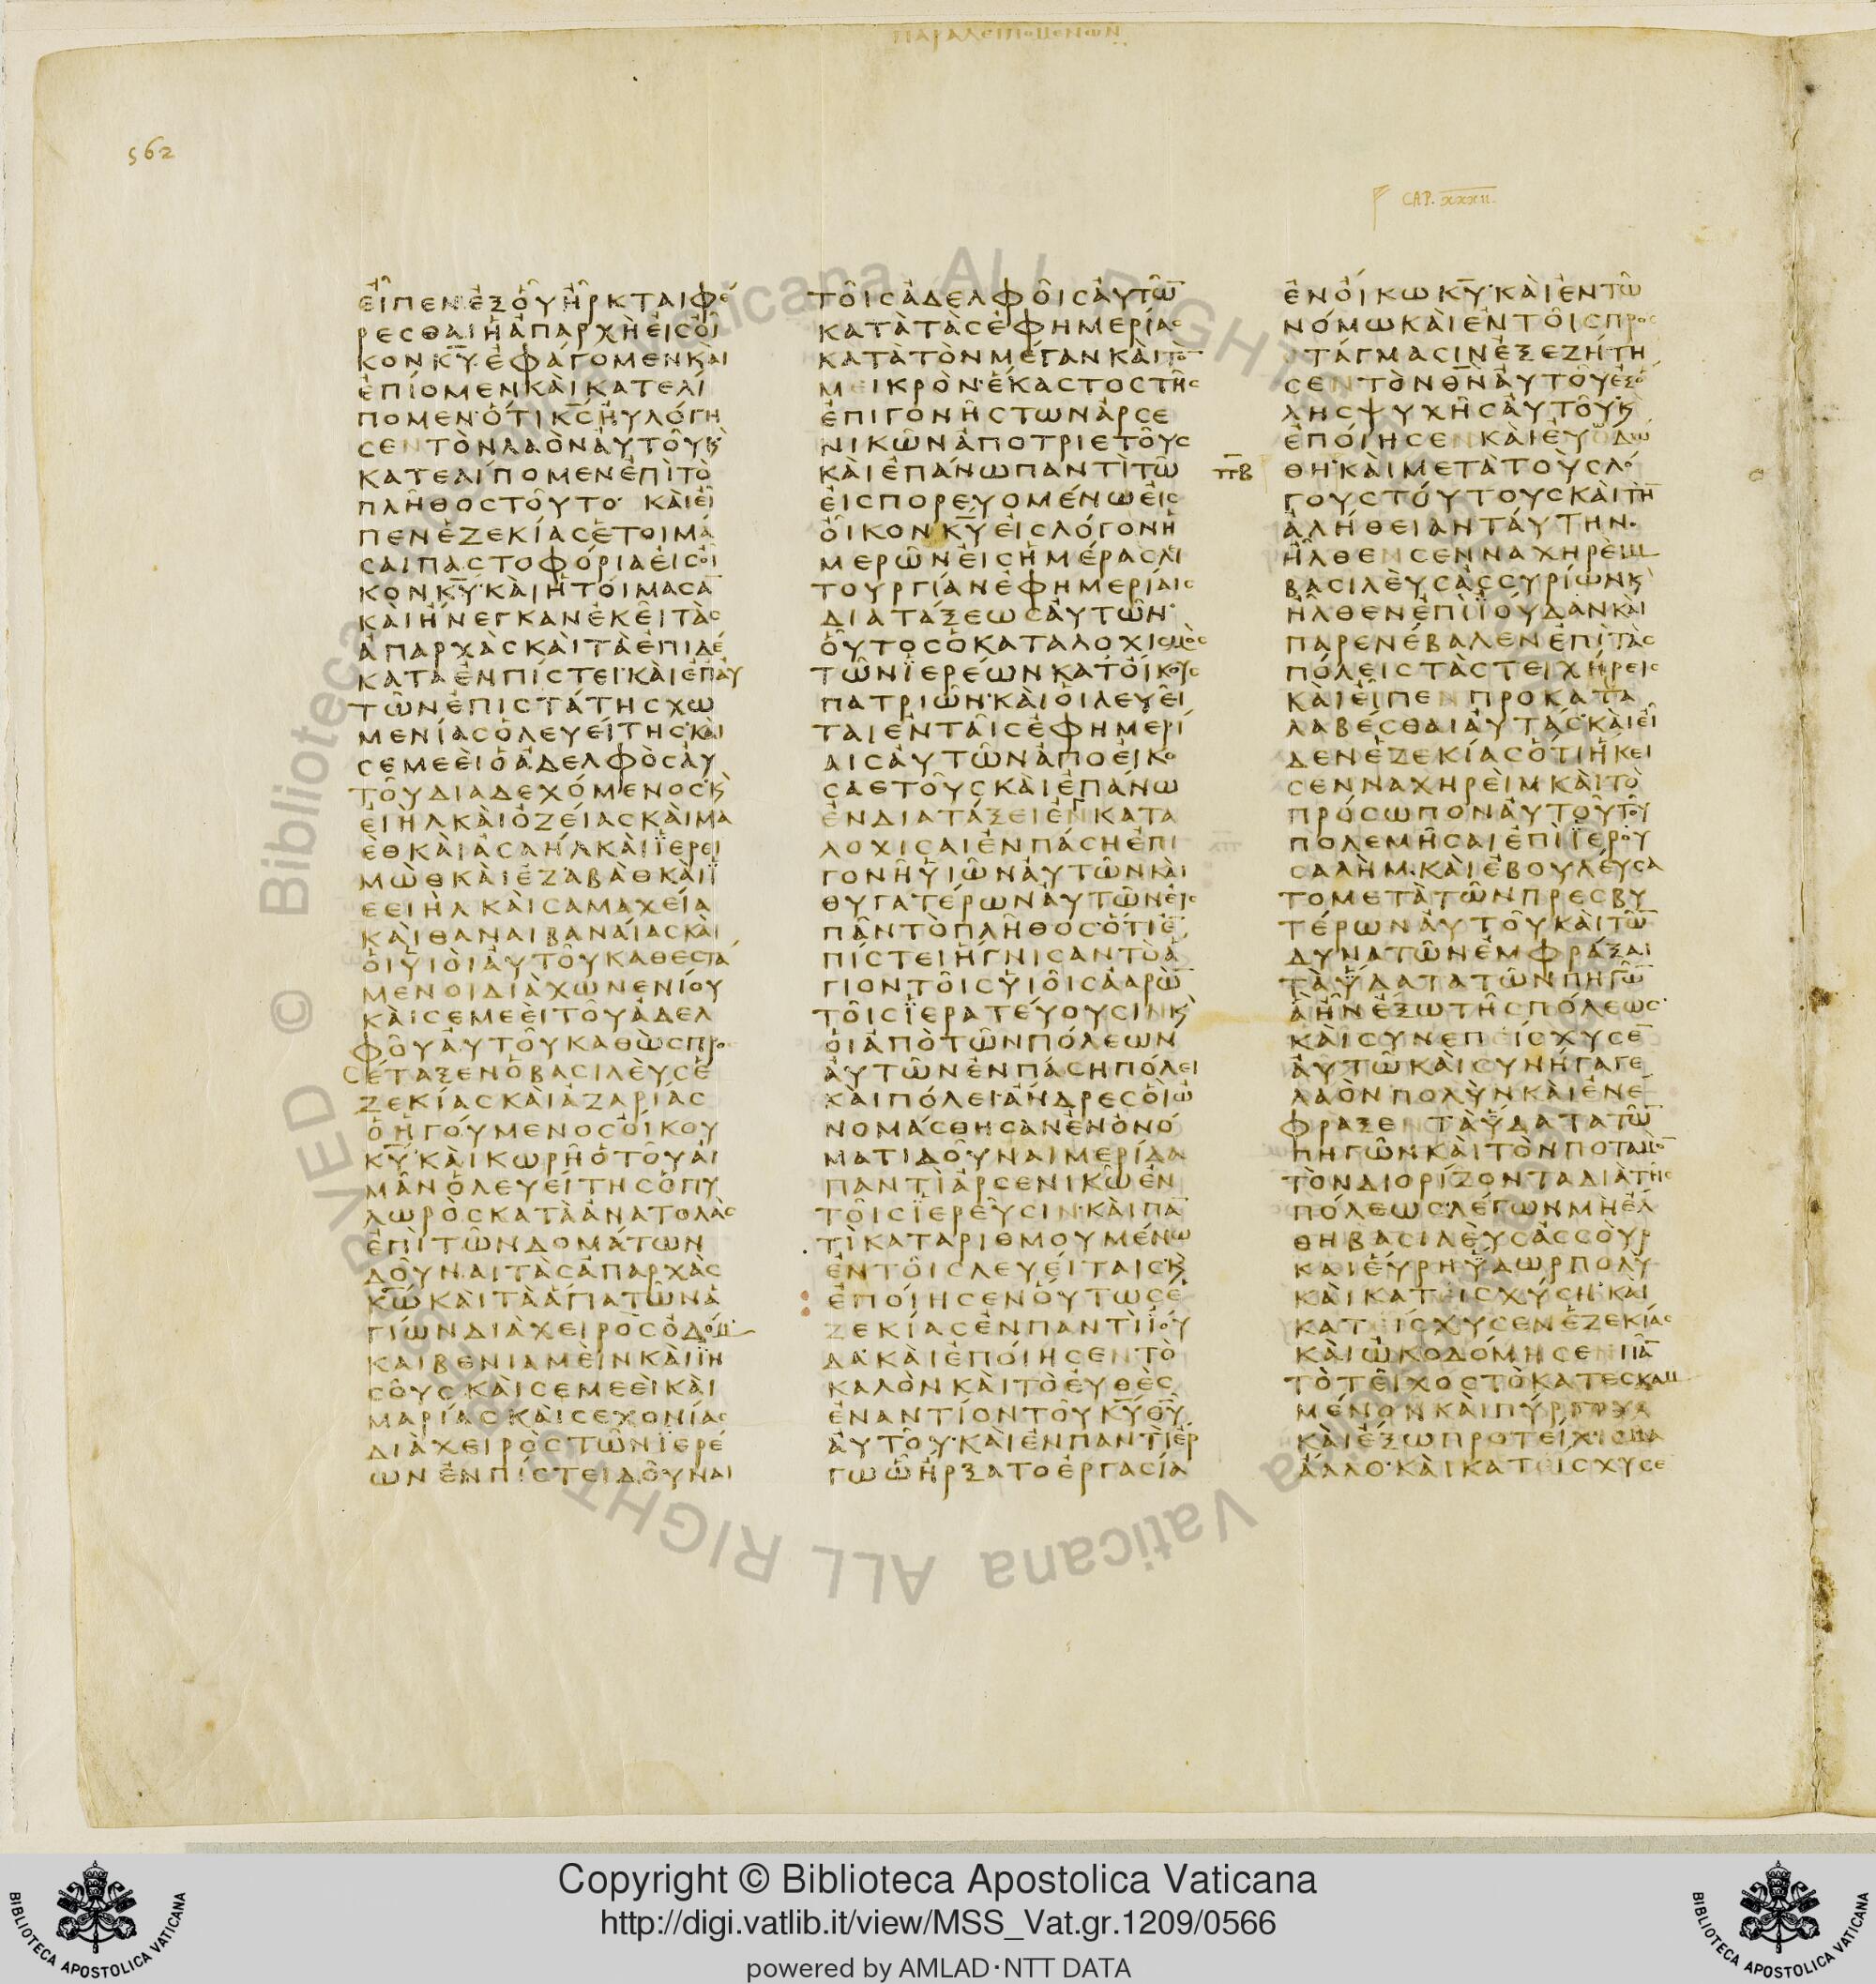 ΠΑΡΑΛΕΙΠΟΜΕΝΩΝ
562
CAP. XXXII.
ΕἾΠΕΝἘΞΟὟἮΡΚΤΑΙΦΈ
ΡΕΣΘΑΙἩἈΠΑΡΧῊΕἸΣΟἾ
ΚΟΝΚ̅Υ̅·ἘΦΆΓΟΜΕΝΚΑῚ
ἘΠΊΟΜΕΝΚΑῚΚΑΤΕΛΊ
ΠΟΜΕΝ·ὍΤΙΚ̅Σ̅ΗΥΛΌΓΗ
ΣΕΝΤῸΝΛΑῸΝΑΥΤΟΥ͂Κ̀
ΚΑΤΕΛΊΠΟΜΕΝἘΠῚΤῸ
ΠΛΗ͂ΘΟΣΤΟΥ͂ΤΟ· ΚΑῚΕἾ
ΠΕΝἘΖΕΚΊΑΣἙΤΟΙΜΆ
ΣΑΙΠΑΣΤΟΦΌΡΙΑΕἸΣΟἾ
ΚΟΝΚ̅Υ̅·ΚΑῚΗΤΟΊΜΑΣΑ̅
ΚΑῚἬΝΕΓΚΑΝἘΚΕΙ͂ΤᾺΣ
ἈΠΑΡΧᾺΣΚΑῚΤᾺἘΠΙΔΈ
ΚΑΤΑἘΝΠΊΣΤΕΙ·ΚΑῚἘΠΑΥ
ΤΩ͂ΝἘΠΙΣΤΆΤΗΣΧΩ
ΜΕΝΊΑΣὉΛΕΥΕΊΤΗΣ·ΚΑῚ
ΣΕΜΕΕῚὉἈΔΕΛΦῸΣΑΥ
ΤΟΥ͂ΔΙΑΔΕΧΌΜΕΝΟΣ·Κ̀
ΕΙΗΛΚΑῚὈΖΕΊΑΣΚΑῚΜΑ
ῈΘΚΑῚἈΣΑΗΛΚΑῚΪΕΡΕΙ
ΜῺΘΚΑῚἘΖΑΒᾺΘΚΑῚΪ
ΕΕΙΗΛΚΑῚΣΑΜΑΧΕΊΑ
ΚΑῚΘΑΝΑΙΒΑΝΑΊΑΣΚΑῚ
ΟἹΥἹΟῚΑΥΤΟΥ͂ΚΑΘΕΣΤΑ
ΜΕΝΟΙΔΙᾺΧΩΝΕΝΊΟΥ
ΚΑῚΣΕΜΕΕῚΤΟΥ͂ἈΔΕΛ
ΦΟΥ͂ΑΥΤΟΥ͂ΚΑΘῺΣΠΡΟ
ΣΈΤΑΞΕΝὉΒΑΣΙΛΕῪΣἘ
ΖΕΚΊΑΣΚΑῚἈΖΑΡΊΑΣ
ὉἩΓΟΎΜΕΝΟΣΟἼΚΟΥ
Κ̅Υ̅·ΚΑῚΚΩΡΗ͂ὉΤΟΥ͂ΑΙ
ΜΑΝὉΛΕΥΕΊΤΗΣὉΠΥ
ΛΩΡῸΣΚΑΤᾺἈΝΑΤΟΛᾺΣ
ἘΠῚΤΩ͂ΝΔΟΜΆΤΩΝ
ΔΟΥ͂ΝΑΙΤᾺΣἈΠΑΡΧᾺΣ
Κ̅Ω̅ΚΑῚΤᾺἍΓΙΑΤΩΝἉ
ΓΊΩΝΔΙᾺΧΕΙΡῸΣὈΔΟΜ
ΚΑΙΒΕΝΙΑΜΕῚΝΚΑῚΪΗ
ΣΟΥ͂ΣΚΑῚΣΕΜΕΕῚΚΑῚ
ΜΑΡΊΑΣΚΑῚΣΕΧΟΝΊΑΣ
ΔΙᾺΧΕΙΡῸΣΤΩ͂ΝΪΕΡΈ
ΩΝἘΝΠΊΣΤΕΙΔΟΥ͂ΝΑΙ
ΤΟΙ͂ΣἈΔΕΛΦΟΙ͂ΣΑΥΤΩ̅
ΚΑΤᾺΤᾺΣἘΦΗΜΕΡΊΑΣ
ΚΑΤᾺΤῸΝΜΈΓΑΝΚΑῚΤῸ̅
ΜΕΙΚΡῸΝ·ἝΚΑΣΤΟΣΤΗ͂Σ
ἘΠΙΓΟΝΗ͂ΣΤΩΝἈΡΣΕ
ΝΙΚΩ͂ΝἈΠΟΤΡΙΕΤΟΥ͂Σ
ΚΑῚἘΠΆΝΩΠΑΝΤῚΤΩ͂
ΕἸΣΠΟΡΕΥΟΜΈΝΩΕἸΣ
ΟἾΚΟΝΚ̅Υ̅ΕἸΣΛΌΓΟΝἩ
ΜΕΡΩ͂ΝΕἸΣἩΜΈΡΑΣΛΙ
ΤΟΥΡΓΊΑΝἘΦΗΜΕΡΊΑΙΣ
ΔΙΑΤΆΞΕΩΣΑΥΤΩ͂Ν·
ΟὟΤΟΣὉΚΑΤΑΛΟΧΙΣΜῸΣ
ΤΩ͂ΝΪΕΡΈΩΝΚΑΤΟἼΚΟΥΣ
ΠΑΤΡΙΩ͂Ν·ΚΑῚΟἹΛΕΥΕΙ͂
ΤΑΙἘΝΤΑΙ͂ΣἘΦΗΜΕΡΊ
ΑΙΣΑΥΤΩ͂ΝἈΠΟΕἸΚΟ
ΣΑΕΤΟΥ͂ΣΚΑῚἘΠΆΝΩ
ἘΝΔΙΑΤΆΞΕΙἘΝΚΑΤΑ
ΛΟΧΙΣΑΙἘΝΠΆΣΗἘΠΙ
ΓΟΝΗ͂ΥἹΩ͂ΝΑΥΤΩ͂ΝΚΑῚ
ΘΥΓΑΤΈΡΩΝΑΥΤΩ͂ΝΕἸΣ
ΠΑ͂ΝΤῸΠΛΗ͂ΘΟΣ·ὍΤΙἘ̅
ΠΊΣΤΕΙἩΓΝΙΣΑΝΤῸἍ
ΓΙΟΝΤΟΙ͂ΣΥἹΟΙ͂ΣἈΑΡῺ̅
ΤΟΙ͂ΣΪΕΡΑΤΕΎΟΥΣΙΝΚ̀
ΟἹἈΠῸΤΩ͂ΝΠΌΛΕΩΝ
ΑΥΤΩ͂ΝἘΝΠΆΣΗΠΌΛΕΙ
ΚΑῚΠΌΛΕΙ·ἌΝΔΡΕΣΟἹῺ
ΝΟΜΆΣΘΗΣΑΝἘΝὈΝΌ
ΜΑΤΙΔΟΥ͂ΝΑΙΜΕΡΊΔΑ
ΠΑΝΤῚἈΡΣΕΝΙΚΩ͂ἘΝ
ΤΟΙ͂ΣΪΕΡΕΥ͂ΣΙΝ·ΚΑῚΠΑ̅
ΤῚΚΑΤΑΡΙΘΜΟΥΜΈΝΩ
ἘΝΤΟΙ͂ΣΛΕΥΕΊΤΑΙΣΚ̀
ἘΠΟΊΗΣΕΝΟὝΤΩΣἘ
ΖΕΚΊΑΣἘΝΠΑΝΤῚΪΟΎ
ΔΑ·ΚΑῚἘΠΟΊΗΣΕΝΤῸ
ΚΑΛῸΝΚΑῚΤῸΕΥΘῈΣ
ἘΝΑΝΤΊΟΝΤΟΥ͂Κ̅Υ̅Θ̅Υ̅
ΑΥΤΟΥ͂·ΚΑῚἘΝΠΑΝΤῚἜΡ
ΓΩὯἬΡΞΑΤΟἘΡΓΑΣΊΑ
ἘΝΟἼΚΩΚ̅Υ̅·ΚΑῚἘΝΤΩ͂
ΝΌΜΩΚΑῚἘΝΤΟΙ͂ΣΠΡΟΣ
ΤΆΓΜΑΣΙΝἘΞΕΖΉΤΗ
ΣΕΝΤῸΝΘ̅Ν̅ΑΥΤΟΥ͂ἘΞΌ
ΛΗΣΨΥΧΗ͂ΣΑΥΤΟΥ͂·Κ̀
ἘΠΟΊΗΣΕΝΚΑῚΕΥΟΔΩ
Π̅Β̅ ΘΗ·ΚΑῚΜΕΤᾺΤΟῪΣΛΌ
ΓΟΥΣΤΟΎΤΟΥΣΚΑῚΤῊ̅
ἈΛΉΘΕΙΑΝΤΑΎΤΗΝ·
ἮΛΘΕΝΣΕΝΝΑΧΗΡῈΙΜ
ΒΑΣΙΛΕῪΣἈΣΣΥΡΊΩΝΚ̀
ἮΛΘΕΝἘΠῚΪΟΎΔΑΝΚΑῚ
ΠΑΡΕΝΈΒΑΛΕΝἘΠῚΤᾺΣ
ΠΌΛΕΙΣΤᾺΣΤΕΙΧΉΡΕΙΣ
ΚΑῚΕἾΠΕΝΠΡΟΚΑΤΑ
ΛΑΒΈΣΘΑΙΑΥΤΆΣ·ΚΑῚΕἾ
ΔΕΝἘΖΕΚΊΑΣὍΤΙἭΚΕΙ
ΣΕΝΝΑΧΗΡΕῚΜΚΑῚΤῸ
ΠΡΌΣΩΠΟΝΑΥΤΟΥ͂ΤΟΥ͂
ΠΟΛΕΜΗ͂ΣΑΙἘΠῚΪΕΡΟΥ
ΣΑΛῊΜ·ΚΑῚἘΒΟΥΛΕΎΣΑ
ΤΟΜΕΤᾺΤΩ͂ΝΠΡΕΣΒΥ
ΤΈΡΩΝΑΥΤΟΥ͂ΚΑῚΤΩ̅
ΔΥΝΑΤΩ͂ΝἘΜΦΡΆΞΑΙ
ΤᾺὝΔΑΤΑΤΩ͂ΝΠΗΓΩ̅
ἋἮΝἜΞΩΤΗ͂ΣΠΌΛΕΩΣ·
ΚΑῚΣΥΝΕΠΕΙΣΧΥΣΕ̅
ΑΥΤΩ͂ΚΑῚΣΥΝΉΓΑΓΕ
ΛΑῸΝΠΟΛῪΝΚΑῚἘΝΈ
ΦΡΑΞΕΝΤᾺὝΔΑΤΑΤΩ̅
ΠΗΓΩ͂Ν·ΚΑῚΤῸΝΠΟΤΑΜῸ̅
ΤῸΝΔΙΟΡΊΖΟΝΤΑΔΙᾺΤΗ͂Σ
ΠΌΛΕΩΣ·ΛΈΓΩΝΜῊἜΛ
ΘΗΒΑΣΙΛΕῪΣἈΣΣΟῪΡ
ΚΑΙΕὝΡΗὝΔΩΡΠΟΛΎ
ΚΑῚΚΑΤΕΙΣΧΎΣΗ·ΚΑῚ
ΚΑΤΕΙΣΧΥΣΕΝἘΖΕΚΊΑΣ
ΚΑῚΩΚΟΔΌΜΗΣΕΝΠΑ̅
ΤῸΤΕΙ͂ΧΟΣΤῸΚΑΤΕΣΚΑΜ
ΜΈΝΟΝΚΑῚΠΎΡΓΟΥΣ
ΚΑῚἜΞΩΠΡΟΤΕΊΧΙΣΜΑ
ἌΛΛΟ·ΚΑῚΚΑΤΕΙΣΧΥΣΕ
Copyright © Biblioteca Apostolica Vaticana
http://digi.vatlib.it/view/MSS_Vat.gr.1209/0566
powered by AMLAD·NTT DATA
BIBLIOTECA APOSTOLICA VATICANA
BIBLIOTECA APOSTOLICA VATICANA